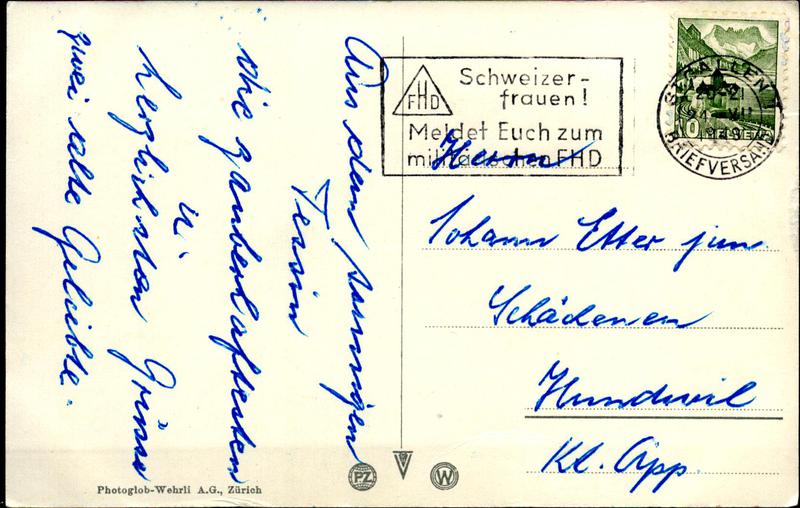 Aus dem sonnigen
Tessin
die zauberhaftesten
u.
herzlichsten Grüsse
zwei alte Geliebte.
Schweizer-
frauen!
FHD
Meldet Euch zum
militärischen FHD
ST. GALLEN 1
21
24. VII
1949
BRIEFVERSAND
10
HELVETIA
Herrn
Johann Etter jun
Schädenen
Hundwil
Kt. App.
Photoglob-Wehrli A.G., Zürich
PZ
W